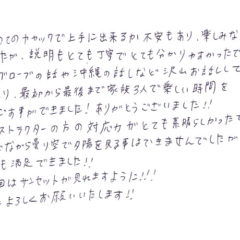 めてのカヤックで上手に出来るか不安もあり、楽しみな
たが、説明もとても丁寧でとても分かりやすかったで
グローブの話や沖縄の話しなど沢山お話しして
り、最初から最後まで家族3人で楽しい時間を
ごす事ができました！ありがとうございました!!
ストラクターの方の対応力がとても素晴らしかったで
ながら曇り空で夕陽を見る事はできませんでしたが
も満足できました!!
回はサンセットが見れますように!!!
よろしくお願いいたします!!